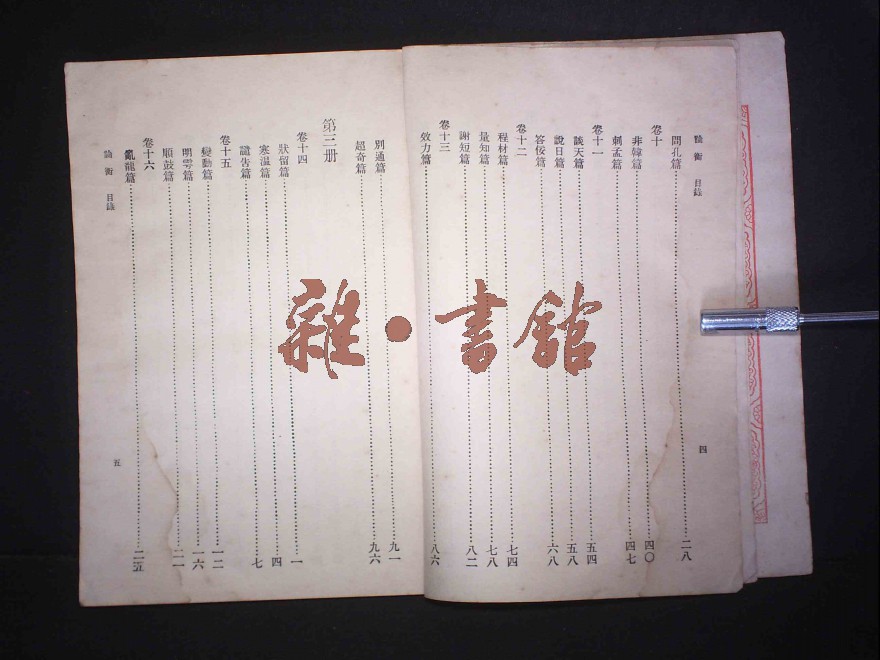 論衡 目錄
四
問孔篇……二八
卷十
非韓篇……四〇
刺孟篇……四七
卷十一
談天篇……五四
說日篇……五八
答佞篇……六八
卷十二
程材篇……七四
量知篇……七八
謝短篇……八二
卷十三
效力篇……八六
別通篇……九一
超奇篇……九六
第三册
卷十四
狀留篇……一
寒溫篇……四
譴告篇……七
卷十五
變動篇……一二
明雩篇……一六
順鼓篇……二一
卷十六
亂龍篇……二五
論衡 目錄
五
雜·書館